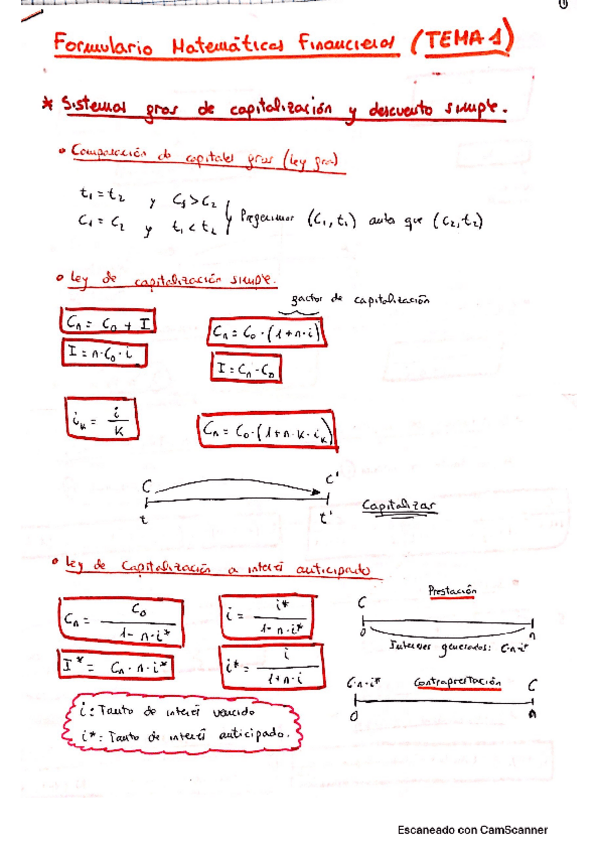 Formulario Matemáticas Financieras (TEMA 1)
* Sistemas gros de capitalización y descuento simple.
• Comparación de capitales gros (ley gros)
t₁ = t₂ y C₁ > C₂
C₁ = C₂ y t₁ < t₂ } (C₁, t₁) antes que (C₂, t₂)
• Ley de capitalización simple.
factor de capitalización
Cn = C₀ + I
Cn = C₀ · (1 + n · i)
I = n · C₀ · i
I = Cn - C₀
iₖ = i / k
Cn = C₀ · (1 + n · k · iₖ)
C C'
t t'
Capitalizar
• Ley de Capitalización a interés anticipado
Cn = C₀ / (1 - n · i*)
i = i* / (1 - n · i*)
I* = Cn · n · i*
i* = i / (1 + n · i)
Prestación
C
0 n
Intereses generados: C·n·i*
C·n·i* Contraprestación C
0 n
i: Tanto de interés vencido
i*: Tanto de interés anticipado.
Escaneado con CamScanner